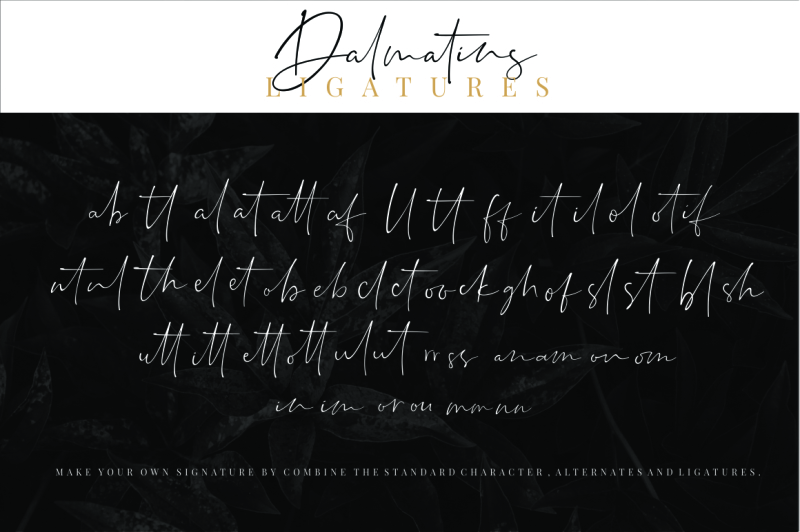 Dalmatins
LIGATURES
ab tl al at att af ll tt ff it il ol ot if
nt nl th el et ob eb cl ct ov ck gh of sl st bl sh
utt itt ett ott ul ut rr ss an am on om
in im or ou mm nn
MAKE YOUR OWN SIGNATURE BY COMBINE THE STANDARD CHARACTER , ALTERNATES AND LIGATURES .